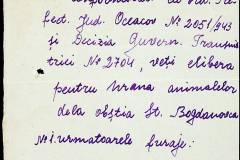 fect. Jud. Oceacov Nº 2051/943
și Decizia Guvern. Transnis
triei Nº 2704, veți elibera
pentru hrana animalelor
dela obștia St. Bogdanovca
Nº 1. urmatoarele furaje: